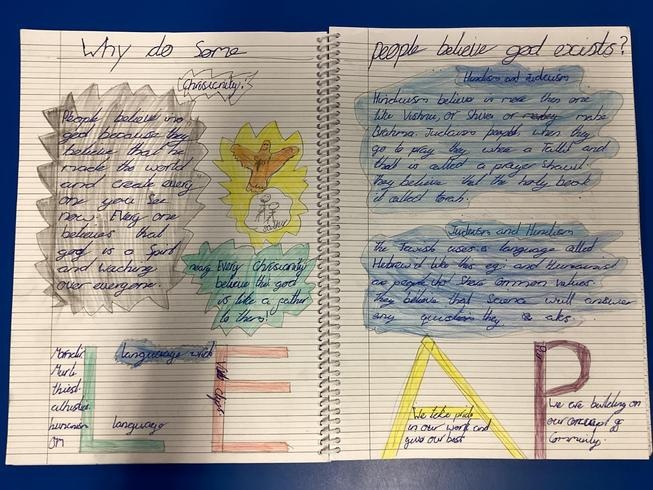 Why do Some
Chrisianity.
People believe in
god because they
believe that he
made the world
and create every
one you See
now. Every one
believes that
god is a Spirit
and waching
over everyone.
Every Chrisianity
believe that god
is like a father
to them!
language with
language
OM
people believe god exists?
Hindism and Judeusim
Hinduism believe in more then one
like Vishnu, or Shiva or
Brahma. Judaism people when they
go to pray they where a Tallit and
that is called a prayer shawl.
They believe that the holy book
is called torah.
Judeusim and Hindism
the Jewish uses a language called
Hebrew like this eg. and Humanist
are people that Share common values.
they believe that Science will answer
any question they
L E A P
We take pride
in our work and
give our best
We are building on
our concept of
Community.